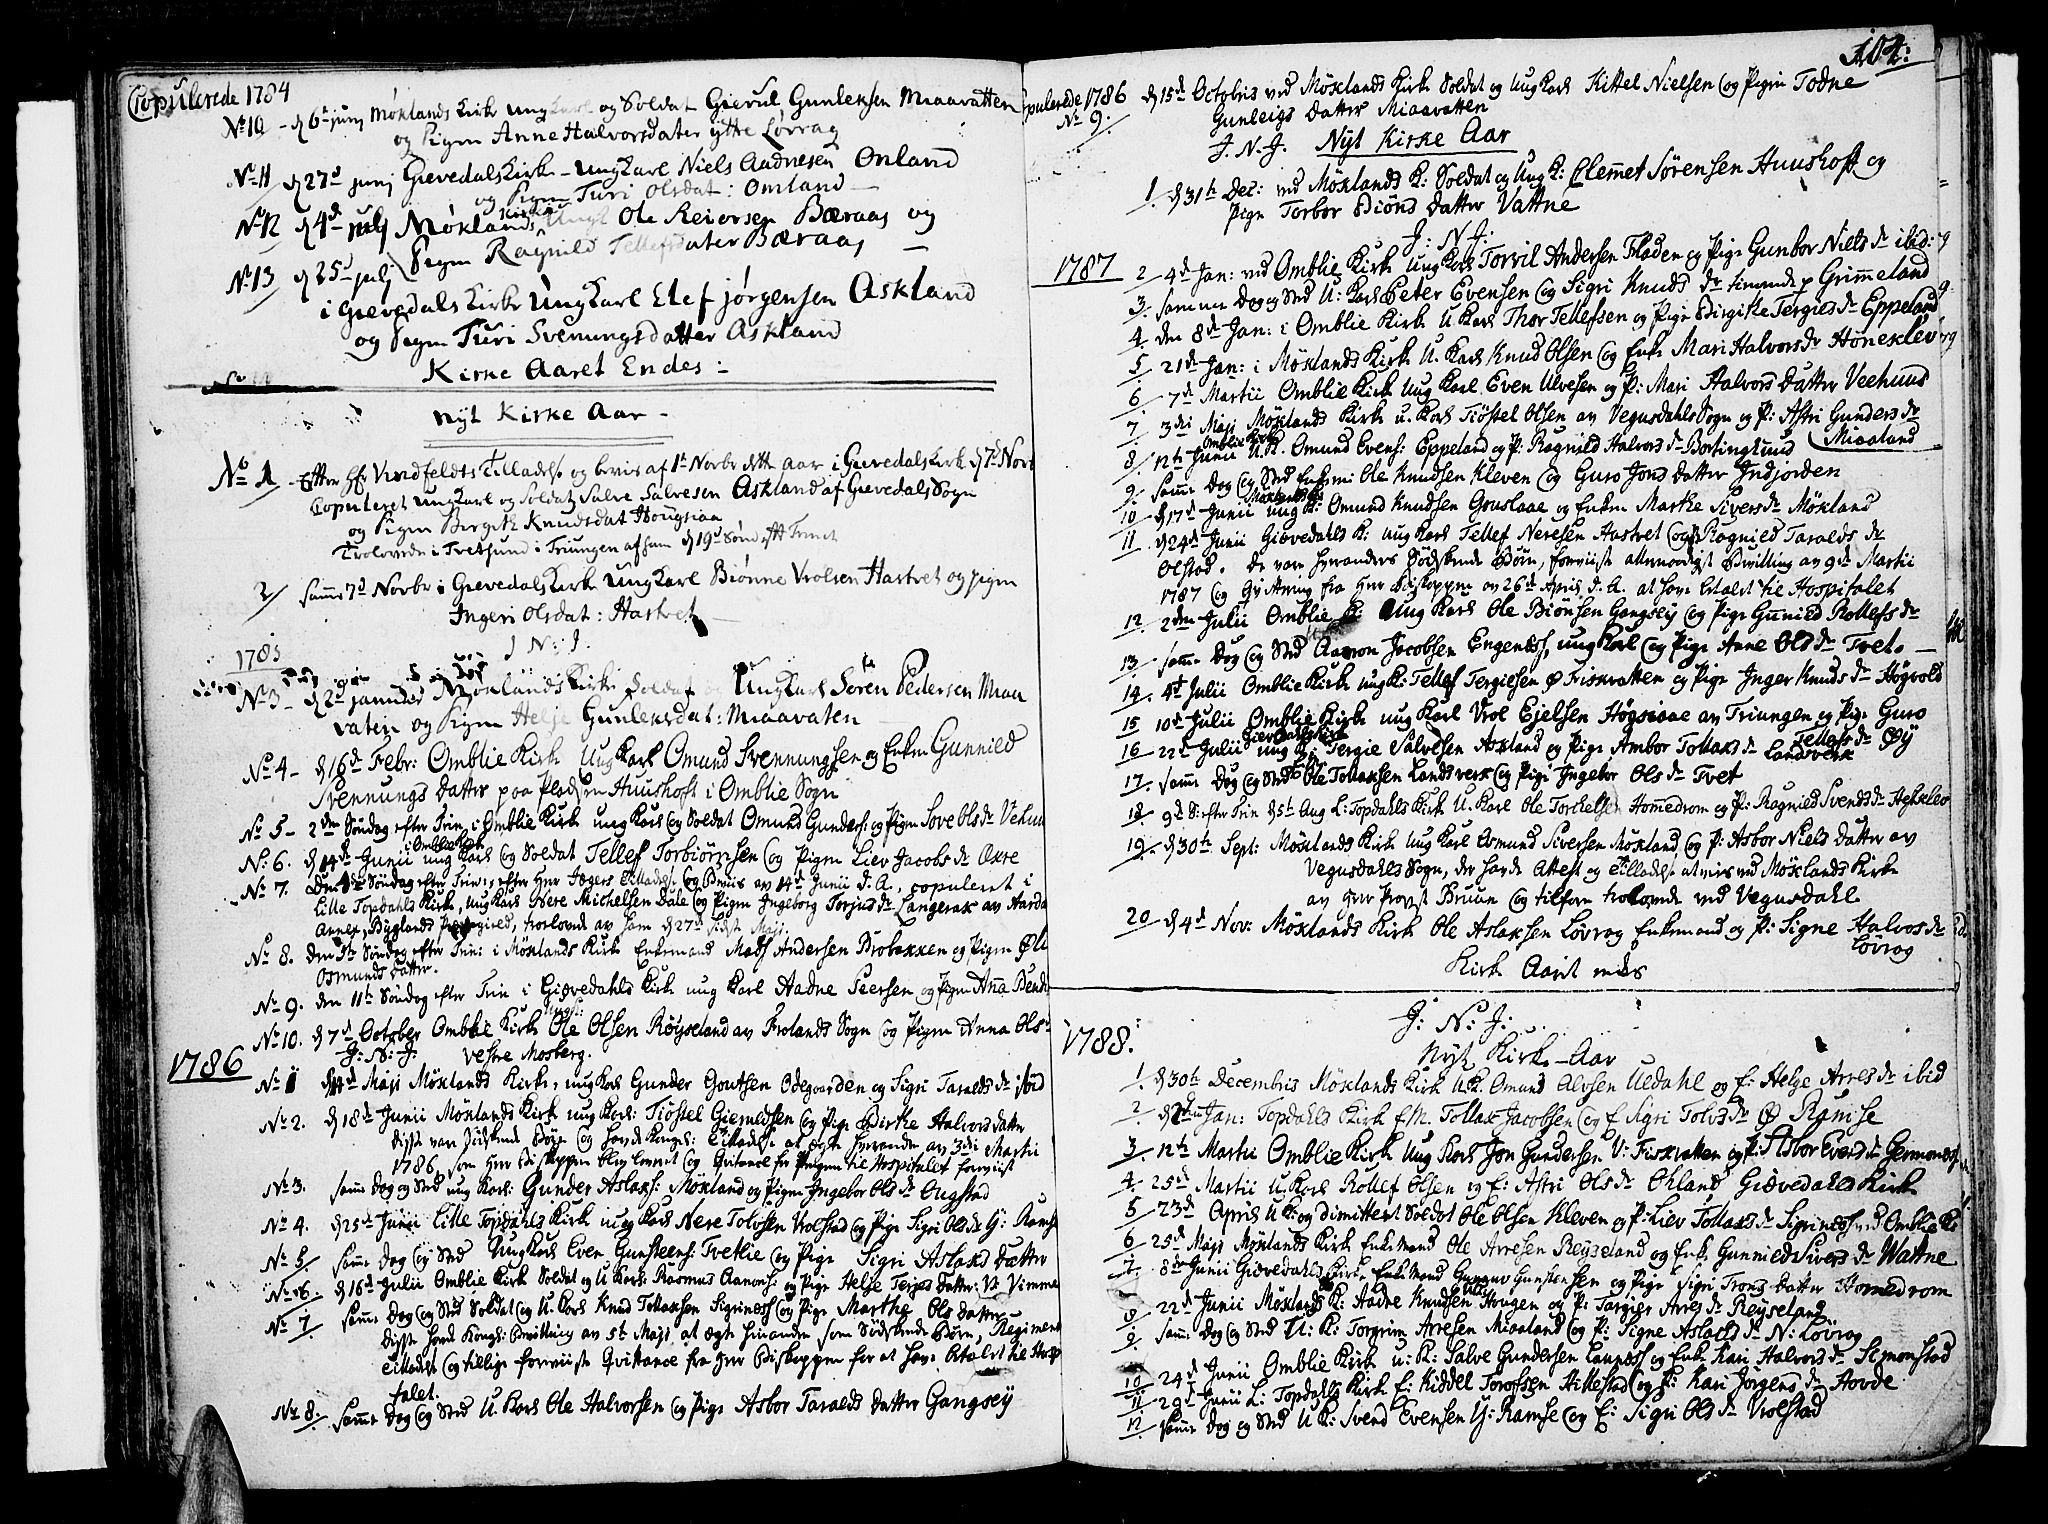 Copulerede 1784
No 10 - d 6t junj Møklands Kirke ungkarl og Soldat Gierul Gunleksen Miaavatten
og Pigen Anne Halvorsdater ytte Løvrag
No 11 d 27d junj Gievedals Kirke - Ungkarl Niels Aadnesen Omland
og Pigen Turi Olsdat: Omland -
No 12 d 4d julj Møklands Kirke Ungk Ole Reiersen Bæraas og
Pigen Ragnild Tellefsdater Bæraas -
No 13 d 25d julj
i Gievedals Kirke Ungkarl Elef jørgensen Askland
og Pigen Turi Svenungsdatter Askland
Kirke Aaret Endes -
Nyt Kirke Aar -
No 1 Efter Hr Vindfeldts Tilladelse og bevis af 1t Novbr dette aar i Gievedals Kirk d 7d Nov
Copuleret ungkarl og Soldat Salve Salvesen Askland af Gievedals Sogn
og Pigen Birgith Knudsdat Hougsiaa
Trolovede i Tretsund i Triungen af ham d 19d Sønd eft Trinit
2/ samme 7d Novbr i Gievedals Kirk Ungkarl Biønne Vrolsen Hastvet og pigen
Ingeri Olsdat: Hastvet -
J N: J.
1785
No 3 - d 2d januar Møklands Kirke Soldat og Ungkarl Søren Pedersen Miaa
vaten og Pigen Helje Gunleksdat: Miaavaten
No 4 - d 16d Febr: Omblie Kirk Ung Karl Omund Svennungsen og Enken Gunnild
Svennungs Datter paa Pladsen Huushoft i Omblie Sogn
No 5 - 2den Søndag efter Trin: i Omblie Kirk ung Karl og Soldat Omund Gunders: og Pigen Tove Ols Dr Vehuu
No 6. d 14d Junii i Omblie Kirk ung Karl og Soldat Tellef Torbiørnsen og Pigen Liev Jacobs Dr Oxre
No 7. Den Søndag efter Trin:, efter Herr Hegers Tilladelse og Beviis av 14d Junii d. A, copuleret i
Lille Topdahls Kirk, ung Karl Nere Michelsen Dale og Pigen Ingeborg Torjus Dr Langerak av Aardal
Annex, Byglands Præstegield, trolovede av ham d 27d sidst Maji
No 8. den Søndag efter Trin: i Møklands Kirk Enkemand Mads Andersen Brobakken og Pigen
Osmunds Datter.
No 9. den 11t Søndag efter Trin i Giøvedahls Kirk ung Karl Aadne Peersen og Pigen Anna Bendt
No 10. d 7d October Omblie Kirk Ole Olsen Røyseland av Frolands Sogn og Pigen Anna Ols
vestre Mosberg.
1786 J: N: J:
No 1 d 14d Maji Møklands Kirk, ung Karl Gunder Goutsen Odegaarden og Sigri Taralds Dr ibid
No 2. d 18d Junii Møklands Kirk ung Karl: Tiøstel Giermundsen og Pige Birthe Halvors Datter
disse var Sødskende Børn og havde Kongl: Tilladelse at ægte hverandre av 3die Martii
1786, som Herr Biskoppen blev leveret og Qvitance for Pengene til Hospitalet forviist
No 3. samme Dag og Sted ung Karl: Gunder Aslaks: Møkland og Pigen Ingebor Ols Dr Ougstad
No 4. d 25d Junii Lille Topdahls Kirk ung Karl Nere Tolvsen Vrolstad og Pige Sigri Ols Dr Y: Ramse
No 5 samme Dag og Sted Ung Karl Even Gunsteens: Tvetlie og Pige Sigri Aslaks Datter
No 6. d 16d Julii Omblie Kirk Soldat og U Karl Rasmus Aanons: og Pige Helje Terjes Datter: Vimme
No 7 samme Dag og Sted Soldat og U. Karl Knud Tollaksen Sigriness og Pige Marthe Ols Datter
disse havde Kongl: Bevilling av 5t Maji at ægte hinanden som Sødskende Børn, Regiment
Tilladelse og tillige forviiste Qvittance fra Herr Biskoppen for at have betalt til Hosp
talet.
No 8. samme Dag og Sted U. Karl Ole Halvorsen og Pige Asbor Taralds Datter Gangsøy
104.
Copulerede 1786 d 15d Octobris ved Møklands Kirk Soldat og Ung Karl Kittel Nielsen og Pigen Todne
No 9. Gunleigs Datter Miaavatten
J. N. J. Nyt Kirke Aar
1. d 31th Dec: ved Møklands K: Soldat og Ung K: Clemmet Sørensen Huushoft og
Pige Torbor Biøns Datter Vattne
J: N: J:
1787 2 4d Jan: ved Omblie Kirk Ung Karl Torvil Andersen Fladen og Pige Gunbor Niels Dr ibid:
3. samme Dag og Sted U: Karl Peter Evensen og Sigri Knuds Dr tienende p Grimmeland
4. den 8d Jan: i Omblie Kirk U. Karl Thor Tellefsen og Pige Birgitte Tergies Dr Eppeland
5 21d Jan: i Møklands Kirk U. Karl Knud Olsen og Enke Mari Halvors Dr Høneklev
6 7d Martii Omblie Kirk Ung Karl Even Ulvesen og P: Mari Halvors Datter Veehuus
7. 3die Maji Møklands Kirk u. Karl Tiøstel Olsen av Vegusdahls Sogn og P: Astri Gunders Dr
Miaaland
8/ 12th Junii Omblie Kirk U. K. Omund Evens: Eppeland og P: Ragnild Halvors Dr Bortingtuud
9. samme Dag og Sted Enkem: Ole Knudsen Kleven og Guro Jons Datter Indjorden
10 d 17d Junii Møklands K: ung K: Omund Knudsen Gouslaae og Enken Marthe Sivers Dr Møkland
11. d 24d Junii Giøvedahls K: ung Karl Tellef Neresen Hastvet og P: Ragnild Taralds Dr
Olstad. De vare hverandres Sødskende Børn, forviiste allernaadigst Bevilling av 9d Martii
1787 og Qvittering fra Herr Biskoppen av 26d April d. A. at have betalt til Hospitalet
12. 2den Julii Omblie K: Ung Karl Ole Biønsen Gangsøy og Pige Gunild Rollefs Dr
13. samme Dag og Sted Aanon Jacobsen Engeness, ung Karl og Pige Anne Ols Dr Tvet. -
14. 4d Julii Omblie Kirk ung K: Tellef Tergiesen Ø Fiskvatten og Pige Inger Knuds Dr Høgvold
15 10d Julii Omblie Kirk ung Karl Vrol Ejelsen Høgsiaae av Triungen og Pige Guro
Tellefs Dr Øy
16 22d Julii Giøvedahls Kirk ung K: Tergie Salvesen Askland og Pige Ambor Tollaks Dr Landsverk
17. samme Dag og Sted Ole Tollaksen Landsverk og Pige Ingebor Ols Dr Tvet
18 9d S: efter Trin d 5t Aug L: Topdahls Kirk U. Karl Ole Torkelsen Homedrom og P: Ragnild Svends Dr Hekkelev
19. d 30th Sept: Møklands Kirk Ung Karl Asmund Siversen Møkland og P: Asbor Niels Datter av
Vegusdahls Sogn, der havde Attest og Tilladelse at vies ved Møklands Kirk
av Herr Provst Bruun og tilforn trolovede ved Vegusdahl
20 d 4d Nov: Møklands Kirk Ole Aslaksen Løvrag Enkemand og P: Signe Halvors Dr
Løvrag
Kirk Aaret endes
J: N: J:
1788. Nyt Kirk-Aar
1. d 30th Decembris Møklands Kirk U. K: Omund Alvsen Uedahl og E: Helge Arres Dr ibid
2. d Jan: Topdahls Kirk E. M. Tollak Jacobsen og E Sigri Tolvs Dr Ø Ramse
3. 12th Martii Omblie Kirk Ung Karl Jon Gundersen V: Fiskvatten og P: Asbor Evens Dr
4. 25d Martii U: Karl Rollef Olsen og E: Astri Ols Dr Ohland Giøvedahls Kirk
5 23d April U K: og dimittert Soldat Ole Olsen Kleven og P: Liev Tollaks Dr Sigriness ved Omblie K:
6. 25d Maji Møklands Kirk Enkemand Ole Arresen Reyseland og Enk Gunnild Sivers Dr Wattne
7. 8de Junii Giøvedahls Kirk, Enkemand Gunstensen og Pige Sigri Trons Datter Homedrom
8 22d Junii Møklands K: Aadne Knudsen Hougen og P: Targier Arres Dr Reyseland
9. samme Dag og Sted U: K: Torgrim Arresen Miaaland og P: Signe Aslachs Dr N: Løvrag
10 24d Junii Omblie Kirk U: K: Salve Gundersen Launess og Enk Kari Halvors Dr Simonstad
11 29d Junii L: Topdahls Kirk E: Kiddel Torofsen Hillestad og P: Kari Jørgens Dr Hovde
12 samme Dag og Sted U K: Svend Evensen Y: Ramse og E: Sigri Ols Dr Vrolstad